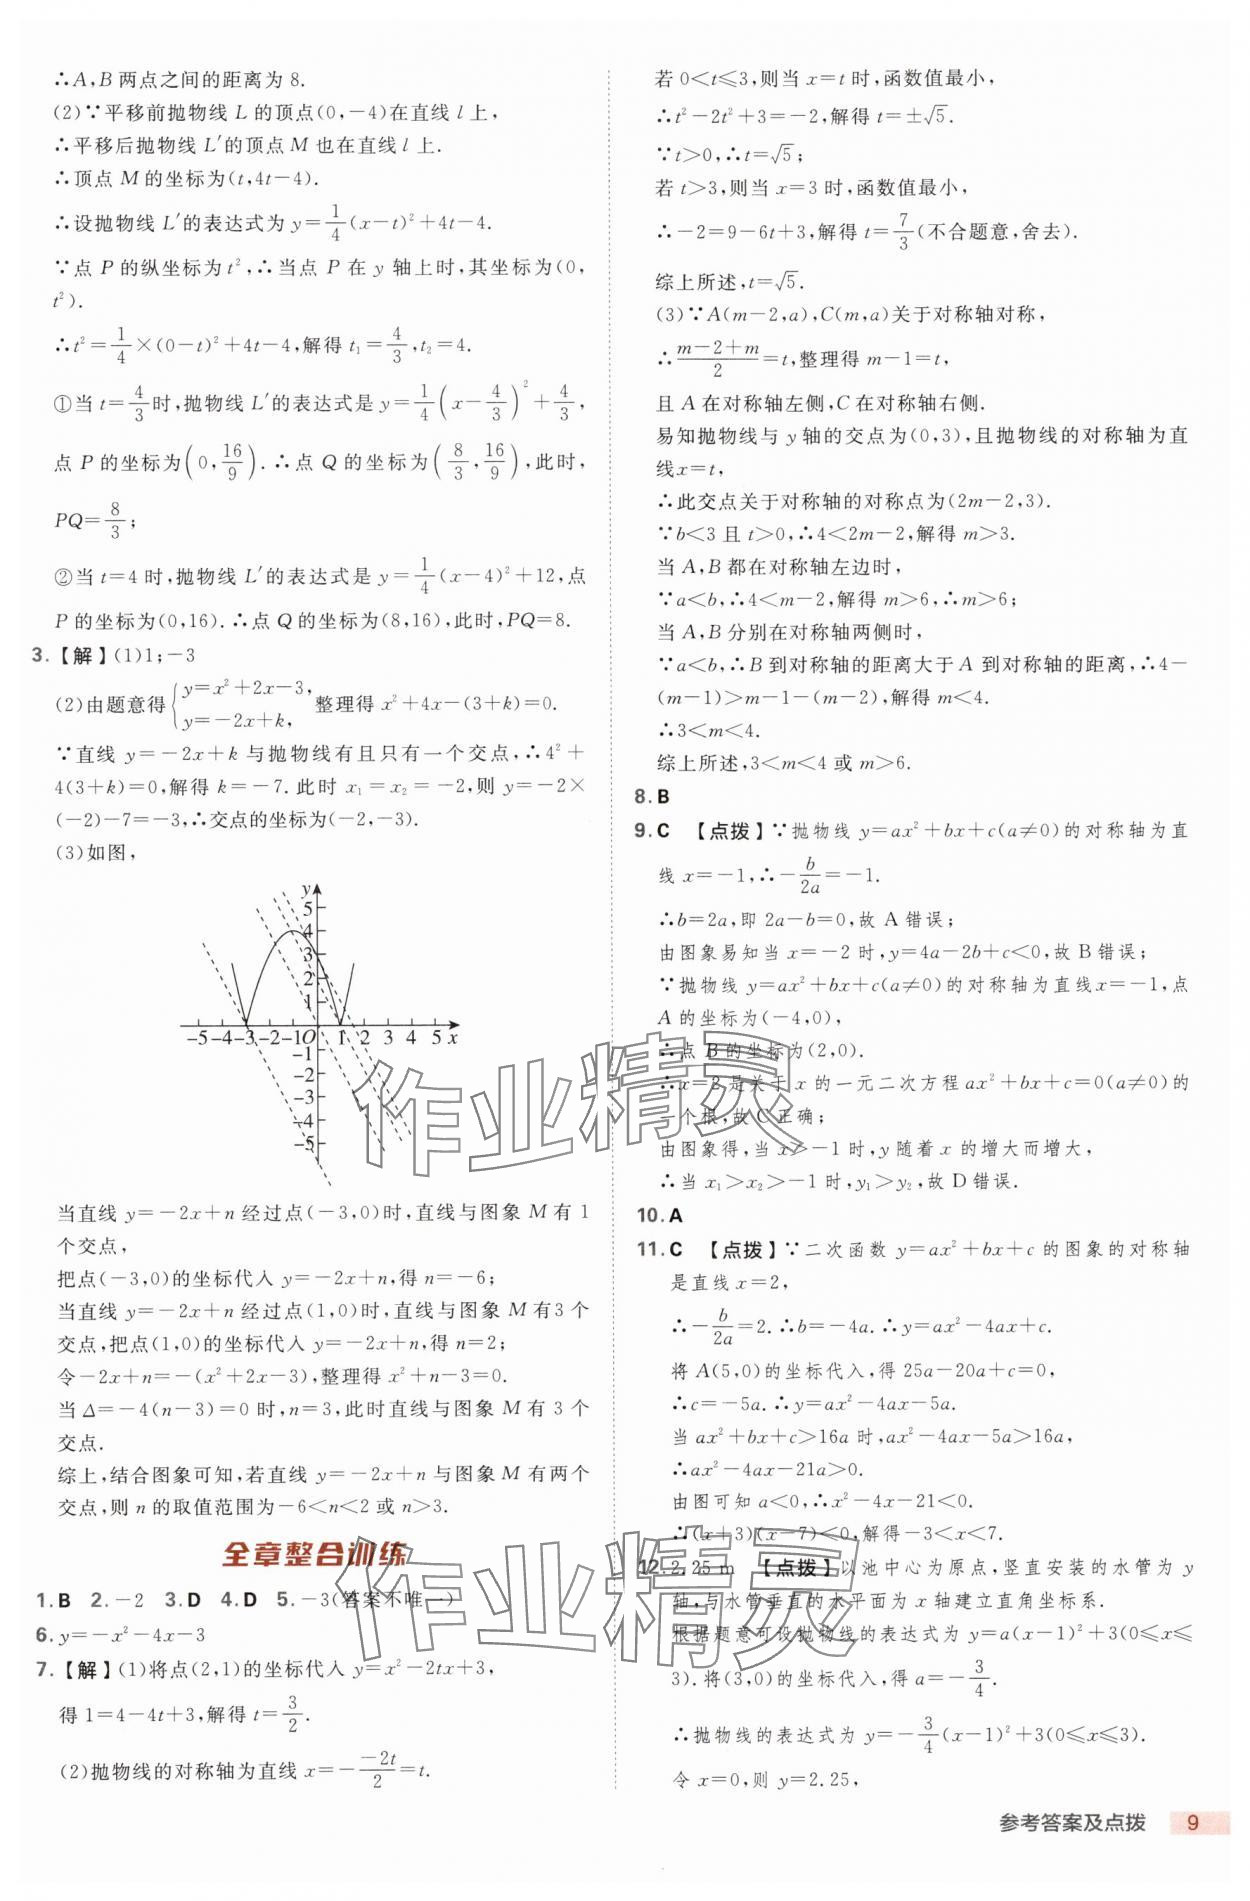 ∴A,B两点之间的距离为8.
(2)∵平移前抛物线L的顶点(0,-4)在直线l上,
∴平移后抛物线L′的顶点M也在直线l上.
∴顶点M的坐标为(t,4t-4).
∴设抛物线L′的表达式为y=1/4(x-t)²+4t-4.
∵点P的纵坐标为t²,∴当点P在y轴上时,其坐标为(0,
t²).
∴t²=1/4×(0-t)²+4t-4,解得t₁=4/3,t₂=4.
①当t=4/3时,抛物线L′的表达式是y=1/4(x-4/3)²+4/3,
点P的坐标为(0,16/9).∴点Q的坐标为(8/3,16/9),此时,
PQ=8/3;
②当t=4时,抛物线L′的表达式是y=1/4(x-4)²+12,点
P的坐标为(0,16).∴点Q的坐标为(8,16),此时,PQ=8.
3.【解】(1)1;-3
(2)由题意得{y=x²+2x-3, y=-2x+k, 整理得x²+4x-(3+k)=0.
∵直线y=-2x+k与抛物线有且只有一个交点,∴4²+
4(3+k)=0,解得k=-7.此时x₁=x₂=-2,则y=-2×
(-2)-7=-3,∴交点的坐标为(-2,-3).
(3)如图,
y
5
4
3
2
1
-5-4-3-2-1O 1 2 3 4 5 x
-1
-2
-3
-4
-5
当直线y=-2x+n经过点(-3,0)时,直线与图象M有1
个交点,
把点(-3,0)的坐标代入y=-2x+n,得n=-6;
当直线y=-2x+n经过点(1,0)时,直线与图象M有3个
交点,把点(1,0)的坐标代入y=-2x+n,得n=2;
令-2x+n=-(x²+2x-3),整理得x²+n-3=0.
当Δ=-4(n-3)=0时,n=3,此时直线与图象M有3个
交点.
综上,结合图象可知,若直线y=-2x+n与图象M有两个
交点,则n的取值范围为-6<n<2或n>3.
全章整合训练
1.B 2.-2 3.D 4.D 5.-3(答案不唯一)
6.y=-x²-4x-3
7.【解】(1)将点(2,1)的坐标代入y=x²-2tx+3,
得1=4-4t+3,解得t=3/2.
(2)抛物线的对称轴为直线x=-(-2t)/2=t.
若0<t≤3,则当x=t时,函数值最小,
∴t²-2t²+3=-2,解得t=±√5.
∵t>0,∴t=√5;
若t>3,则当x=3时,函数值最小,
∴-2=9-6t+3,解得t=7/3(不合题意,舍去).
综上所述,t=√5.
(3)∵A(m-2,a),C(m,a)关于对称轴对称,
∴(m-2+m)/2=t,整理得m-1=t,
且A在对称轴左侧,C在对称轴右侧.
易知抛物线与y轴的交点为(0,3),且抛物线的对称轴为直
线x=t,
∴此交点关于对称轴的对称点为(2m-2,3).
∵b<3且t>0,∴4<2m-2,解得m>3.
当A,B都在对称轴左边时,
∵a<b,∴4<m-2,解得m>6,∴m>6;
当A,B分别在对称轴两侧时,
∵a<b,∴B到对称轴的距离大于A到对称轴的距离,∴4-
(m-1)>m-1-(m-2),解得m<4.
∴3<m<4.
综上所述,3<m<4或m>6.
8.B
9.C 【点拨】∵抛物线y=ax²+bx+c(a≠0)的对称轴为直
线x=-1,∴-b/2a=-1.
∴b=2a,即2a-b=0,故A错误;
由图象易知当x=-2时,y=4a-2b+c<0,故B错误;
∵抛物线y=ax²+bx+c(a≠0)的对称轴为直线x=-1,点
A的坐标为(-4,0),
∴点B的坐标为(2,0).
∴x=2是关于x的一元二次方程ax²+bx+c=0(a≠0)的
一个根,故C正确;
由图象得,当x>-1时,y随着x的增大而增大,
∴当x₁>x₂>-1时,y₁>y₂,故D错误.
10.A
11.C 【点拨】∵二次函数y=ax²+bx+c的图象的对称轴
是直线x=2,
∴-b/2a=2.∴b=-4a.∴y=ax²-4ax+c.
将A(5,0)的坐标代入,得25a-20a+c=0,
∴c=-5a.∴y=ax²-4ax-5a.
当ax²+bx+c>16a时,ax²-4ax-5a>16a,
∴ax²-4ax-21a>0.
由图可知a<0,∴x²-4x-21<0.
∴(x+3)(x-7)<0,解得-3<x<7.
12.2.25 m 【点拨】以池中心为原点,竖直安装的水管为y
轴,与水管垂直的水平面为x轴建立直角坐标系.
根据题意可设抛物线的表达式为y=a(x-1)²+3(0≤x≤
3).将(3,0)的坐标代入,得a=-3/4.
∴抛物线的表达式为y=-3/4(x-1)²+3(0≤x≤3).
令x=0,则y=2.25,
作业精灵
作业精灵
参考答案及点拨 9